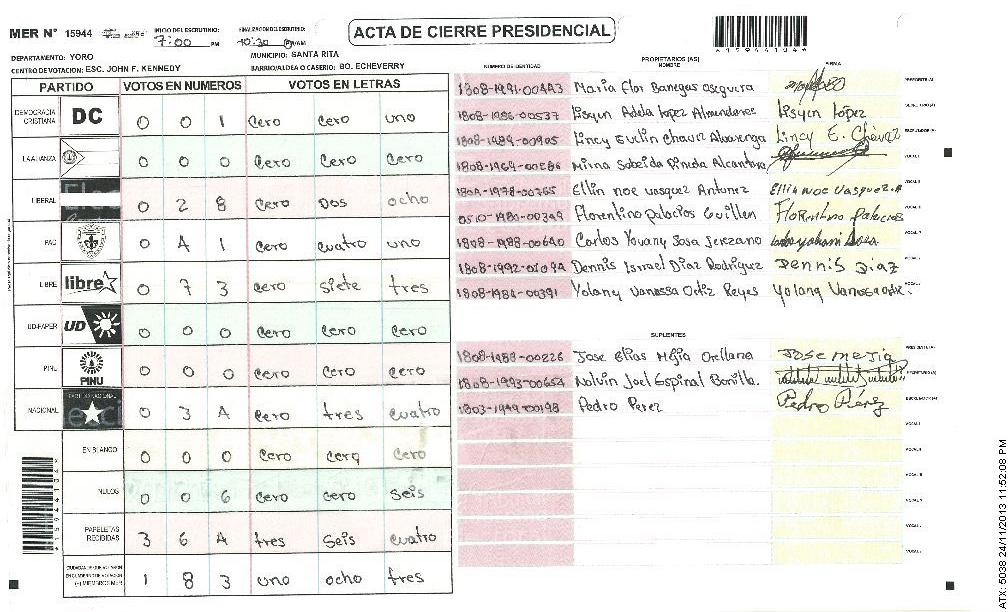 MER N° 15944 INICIO DEL ESCRUTINIO: 7:00 PM FINALIZACION DEL ESCRUTINIO: 10:30 PM/AM
ACTA DE CIERRE PRESIDENCIAL
DEPARTAMENTO: YORO MUNICIPIO: SANTA RITA
CENTRO DE VOTACION: ESC. JOHN F. KENNEDY BARRIO/ALDEA O CASERIO: BO. ECHEVERRY
PARTIDO VOTOS EN NUMEROS VOTOS EN LETRAS
DEMOCRACIA CRISTIANA DC 0 0 1 cero cero uno
LA ALIANZA 0 0 0 cero cero cero
LIBERAL 0 2 8 cero Dos ocho
PAC 0 4 1 cero cuatro uno
LIBRE libre 0 7 3 cero siete tres
UD-FAPER UD 0 0 0 cero cero cero
PINU PINU 0 0 0 cero cero cero
NACIONAL 0 3 4 cero tres cuatro
EN BLANCO 0 0 0 cero cero cero
NULOS 0 0 6 cero cero seis
PAPELETAS RECIBIDAS 3 6 4 tres seis cuatro
1 8 3 uno ocho tres
NUMERO DE IDENTIDAD PROPIETARIOS (AS) NOMBRE FIRMA
1808-1991-00443 Maria Flor Banegas oseguera
1808-1986-00537 Lisyin Adela Lopez Almendares Lisyin López
1808-1989-00905 Lincy Evelin Chavez Alvarenga Lincy E. Chávez
1808-1969-00286 Mirna Sabeida Pineda Alcantara
1804-1978-00765 Ellin noe vasquez Antunez Ellin Noe Vasquez.A
0510-1980-00349 Florentino Palacios Guillen Florentino Palacios
1808-1988-00640 Carlos Yovany Sosa Serezano
1808-1992-01094 Dennis Israel Diaz Rodriguez Dennis Diaz
1808-1984-00391 Yolany Vanessa Ortiz Reyes
SUPLENTES
1808-1988-00226 Jose Elias Mejia Orellana Jose mejia
1808-1993-00654 Nelvin Joel Espinal Bonilla.
1803-1949-00198 Pedro Perez Pedro Pérez
ATX: 5038 24/11/2013 11:52:08 PM